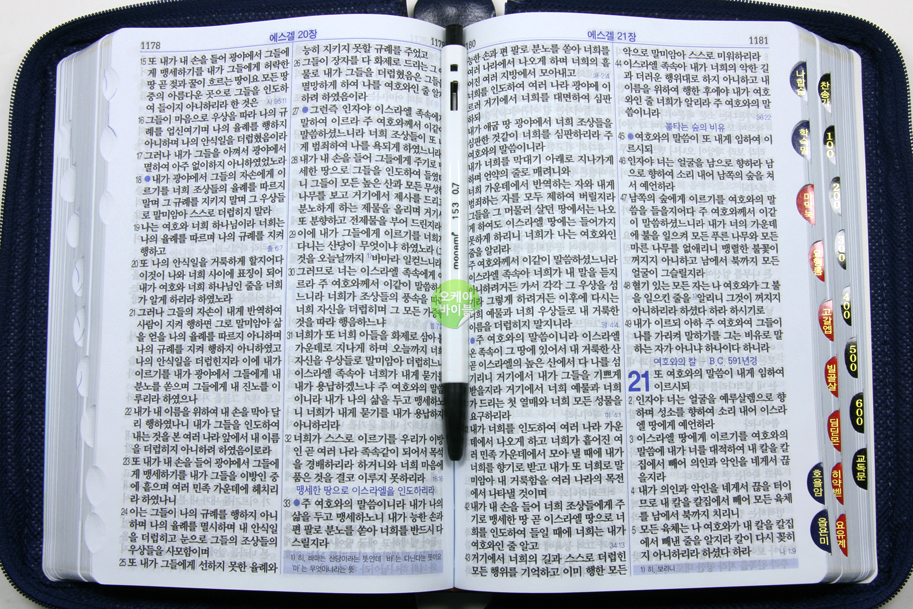 1178
에스겔 20장
15 또 내가 내 손을 들어 광야에서 그들에
게 맹세하기를 내가 그들에게 허락한
땅 곧 젖과 꿀이 흐르는 땅이요 모든 땅
중의 아름다운 곳으로 그들을 인도하
여 들이지 아니하리라 한 것은
16 그들이 마음으로 우상을 따라 나의 규
례를 업신여기며 나의 율례를 행하지
아니하며 나의 안식일을 더럽혔음이라
17 그러나 내가 그들을 아껴서 광야에서
멸하여 아주 없이하지 아니하였었노라
18 내가 광야에서 그들의 자손에게 이
르기를 너희 조상들의 율례를 따르지
말며 그 규례를 지키지 말며 그 우상들
로 말미암아 스스로 더럽히지 말라
19 나는 여호와 너희 하나님이라 너희는
나의 율례를 따르며 나의 규례를 지켜
행하고
20 또 나의 안식일을 거룩하게 할지어다
이것이 나와 너희 사이에 표징이 되어
내가 여호와 너희 하나님인 줄을 너희
가 알게 하리라 하였노라
21 그러나 그들의 자손이 내게 반역하여
사람이 지켜 행하면 그로 말미암아 삶
을 얻을 나의 율례를 따르지 아니하며
나의 규례를 지켜 행하지 아니하였고
나의 안식일을 더럽힌지라 이에 내가
이르기를 내가 광야에서 그들에게 내
분노를 쏟으며 그들에게 내 진노를 이
루리라 하였으나
22 내가 내 이름을 위하여 내 손을 막아 달
리 행하였나니 내가 그들을 인도하여
내는 것을 본 여러 나라 앞에서 내 이름
을 더럽히지 아니하려 하였음이로라
23 또 내가 내 손을 들어 광야에서 그들에
게 맹세하기를 내가 그들을 이방인 중
에 흩으며 여러 민족 가운데에 헤치리
라 하였나니
24 이는 그들이 나의 규례를 행하지 아니
하며 나의 율례를 멸시하며 내 안식일
을 더럽히고 눈으로 그들의 조상들의
우상들을 사모함이며
25 또 내가 그들에게 선하지 못한 율례와
능히 지키지 못할 규례를 주었고
26 그들이 장자를 다 화제로 드리는 그
물로 내가 그들을 더럽혔음은 그들을
멸망하게 하여 나를 여호와인 줄 알게
하려 하였음이라
27 그런즉 인자야 이스라엘 족속에게
말하여 이르라 주 여호와께서 이같이
말씀하셨느니라 너희 조상들이 또
게 범죄하여 나를 욕되게 하였느니라
28 내가 내 손을 들어 그들에게 주기로
세한 땅으로 그들을 인도하여 들였더
니 그들이 모든 높은 산과 모든 무성
나무를 보고 거기에서 제사를 드리고
분노하게 하는 제물을 올리며 거기서
또 분향하고 전제물을 부어 드린지라
29 이에 내가 그들에게 이르기를 너희가
다니는 산당이 무엇이냐 하였노라
것을 오늘날까지 바마라 일컫느니라
30 그러므로 너는 이스라엘 족속에게
르라 주 여호와께서 이같이 말씀하셨
느니라 너희가 조상들의 풍속을 따라
너희 자신을 더럽히며 그 모든 가증한
것을 따라 행음하느냐
31 너희가 또 너희 아들을 화제로 삼아 불
가운데로 지나가게 하며 오늘까지 너희
자신을 우상들로 말미암아 더럽히느냐
이스라엘 족속아 너희가 내게 묻기를
내가 용납하겠느냐 주 여호와의 말씀
이니라 나의 삶을 두고 맹세하노
니 너희가 내게 묻기를 내가 용납하지
아니하리라
32 너희가 스스로 이르기를 우리가 이방
인 곧 여러 나라 족속같이 되어서 목석
을 경배하리라 하거니와 너희 마음에
품은 것을 결코 이루지 못하리라
맹세한 땅으로 이스라엘을 인도하리라
33 주 여호와의 말씀이니라 내가 나의
삶을 두고 맹세하노니 내가 능한 손과
편 팔로 분노를 쏟아 너희를 반드시 다
스릴지라
에스겔 21장
1181
능한 손과 편 팔로 분노를 쏟아 너희를
여러 나라에서 나오게 하며 너희의 흩
어진 여러 지방에서 모아내고
너희를 인도하여 여러 나라 광야에 이
르러 거기에서 너희를 대면하여 심판
하되
내가 애굽 땅 광야에서 너희 조상들을
심판한 것같이 너희를 심판하리라 주
여호와의 말씀이니라
내가 너희를 막대기 아래로 지나가게
하며 언약의 줄로 매려니와
너희 가운데에서 반역하는 자와 내게
범죄하는 자를 모두 제하여 버릴지라
그들을 그 머물러 살던 땅에서는 나오
게 하여도 이스라엘 땅에는 들어가지
못하게 하리니 너희가 나는 여호와인
줄을 알리라
주 여호와께서 이같이 말씀하셨느니라
이스라엘 족속아 너희가 내 말을 듣지
아니하려거든 가서 각각 그 우상을 섬
기라 그렇게 하려거든 이후에 다시는
너희 예물과 너희 우상들로 내 거룩한
이름을 더럽히지 말지니라
주 여호와의 말씀이니라 이스라엘
온 족속이 그 땅에 있어서 내 거룩한 산
곧 이스라엘의 높은 산에서 다 나를 섬
기리니 거기에서 내가 그들을 기쁘게
받을지라 거기에서 너희 예물과 너희
가 드리는 첫 열매와 너희 모든 성물을
요구하리라
내가 너희를 인도하여 여러 나라 가운
데에서 나오게 하고 너희가 흩어진 여
러 민족 가운데에서 모아 낼 때에 내가
너희를 향기로 받고 내가 또 너희로 말
미암아 내 거룩함을 여러 나라의 목전
에서 나타낼 것이며
42 내가 내 손을 들어 너희 조상들에게 주
기로 맹세한 땅 곧 이스라엘 땅으로 너
희를 인도하여 들일 때에 너희는 내가
여호와인 줄 알고
43 거기에서 너희의 길과 스스로 더럽힌
모든 행위를 기억하고 이미 행한 모든
악으로 말미암아 스스로 미워하리라
44 이스라엘 족속아 내가 너희의 악한 길
과 더러운 행위대로 하지 아니하고 내
이름을 위하여 행한 후에야 내가 여호
와인 줄 너희가 알리라 주 여호와의 말
씀이니라
불타는 숲의 비유
45 여호와의 말씀이 또 내게 임하여 이
르시되
46 인자야 너는 얼굴을 남으로 향하라 남
으로 향하여 소리 내어 남쪽의 숲을 쳐
서 예언하라
47 남쪽의 숲에게 이르기를 여호와의 말
씀을 들을지어다 주 여호와께서 이같
이 말씀하셨느니라 내가 너의 가운데
에 불을 일으켜 모든 푸른 나무와 모든
마른 나무를 없애리니 맹렬한 불꽃이
꺼지지 아니하고 남에서 북까지 모든
얼굴이 그슬릴지라
48 혈기 있는 모든 자는 나 여호와가 그 불
을 일으킨 줄을 알리니 그것이 꺼지지
아니하리라 하셨다 하라 하시기로
49 내가 이르되 아하 주 여호와여 그들이
나를 가리켜 말하기를 그는 비유로 말
하는 자가 아니냐 하나이다 하니라
여호와의 칼 B.C. 591년경
21 또 여호와의 말씀이 내게 임하여
이르시되
2 인자야 너는 얼굴을 예루살렘으로 향
하며 성소를 향하여 소리 내어 이스라
엘 땅에게 예언하라
3 이스라엘 땅에게 이르기를 여호와의
말씀에 내가 너를 대적하여 내 칼을 칼
집에서 빼어 의인과 악인을 네게서 끊
을지라
4 내가 의인과 악인을 네게서 끊을 터이
므로 내 칼을 칼집에서 빼어 모든 육체
를 남에서 북까지 치리니
5 모든 육체는 나 여호와가 내 칼을 칼집
에서 빼낸 줄을 알지라 칼이 다시 꽂히
지 아니하리라 하셨다 하라
1) 히, 보라니
monami
153 0.7
오케이
바이블
찬송가
100
200
400
500
600
교독문
요유계